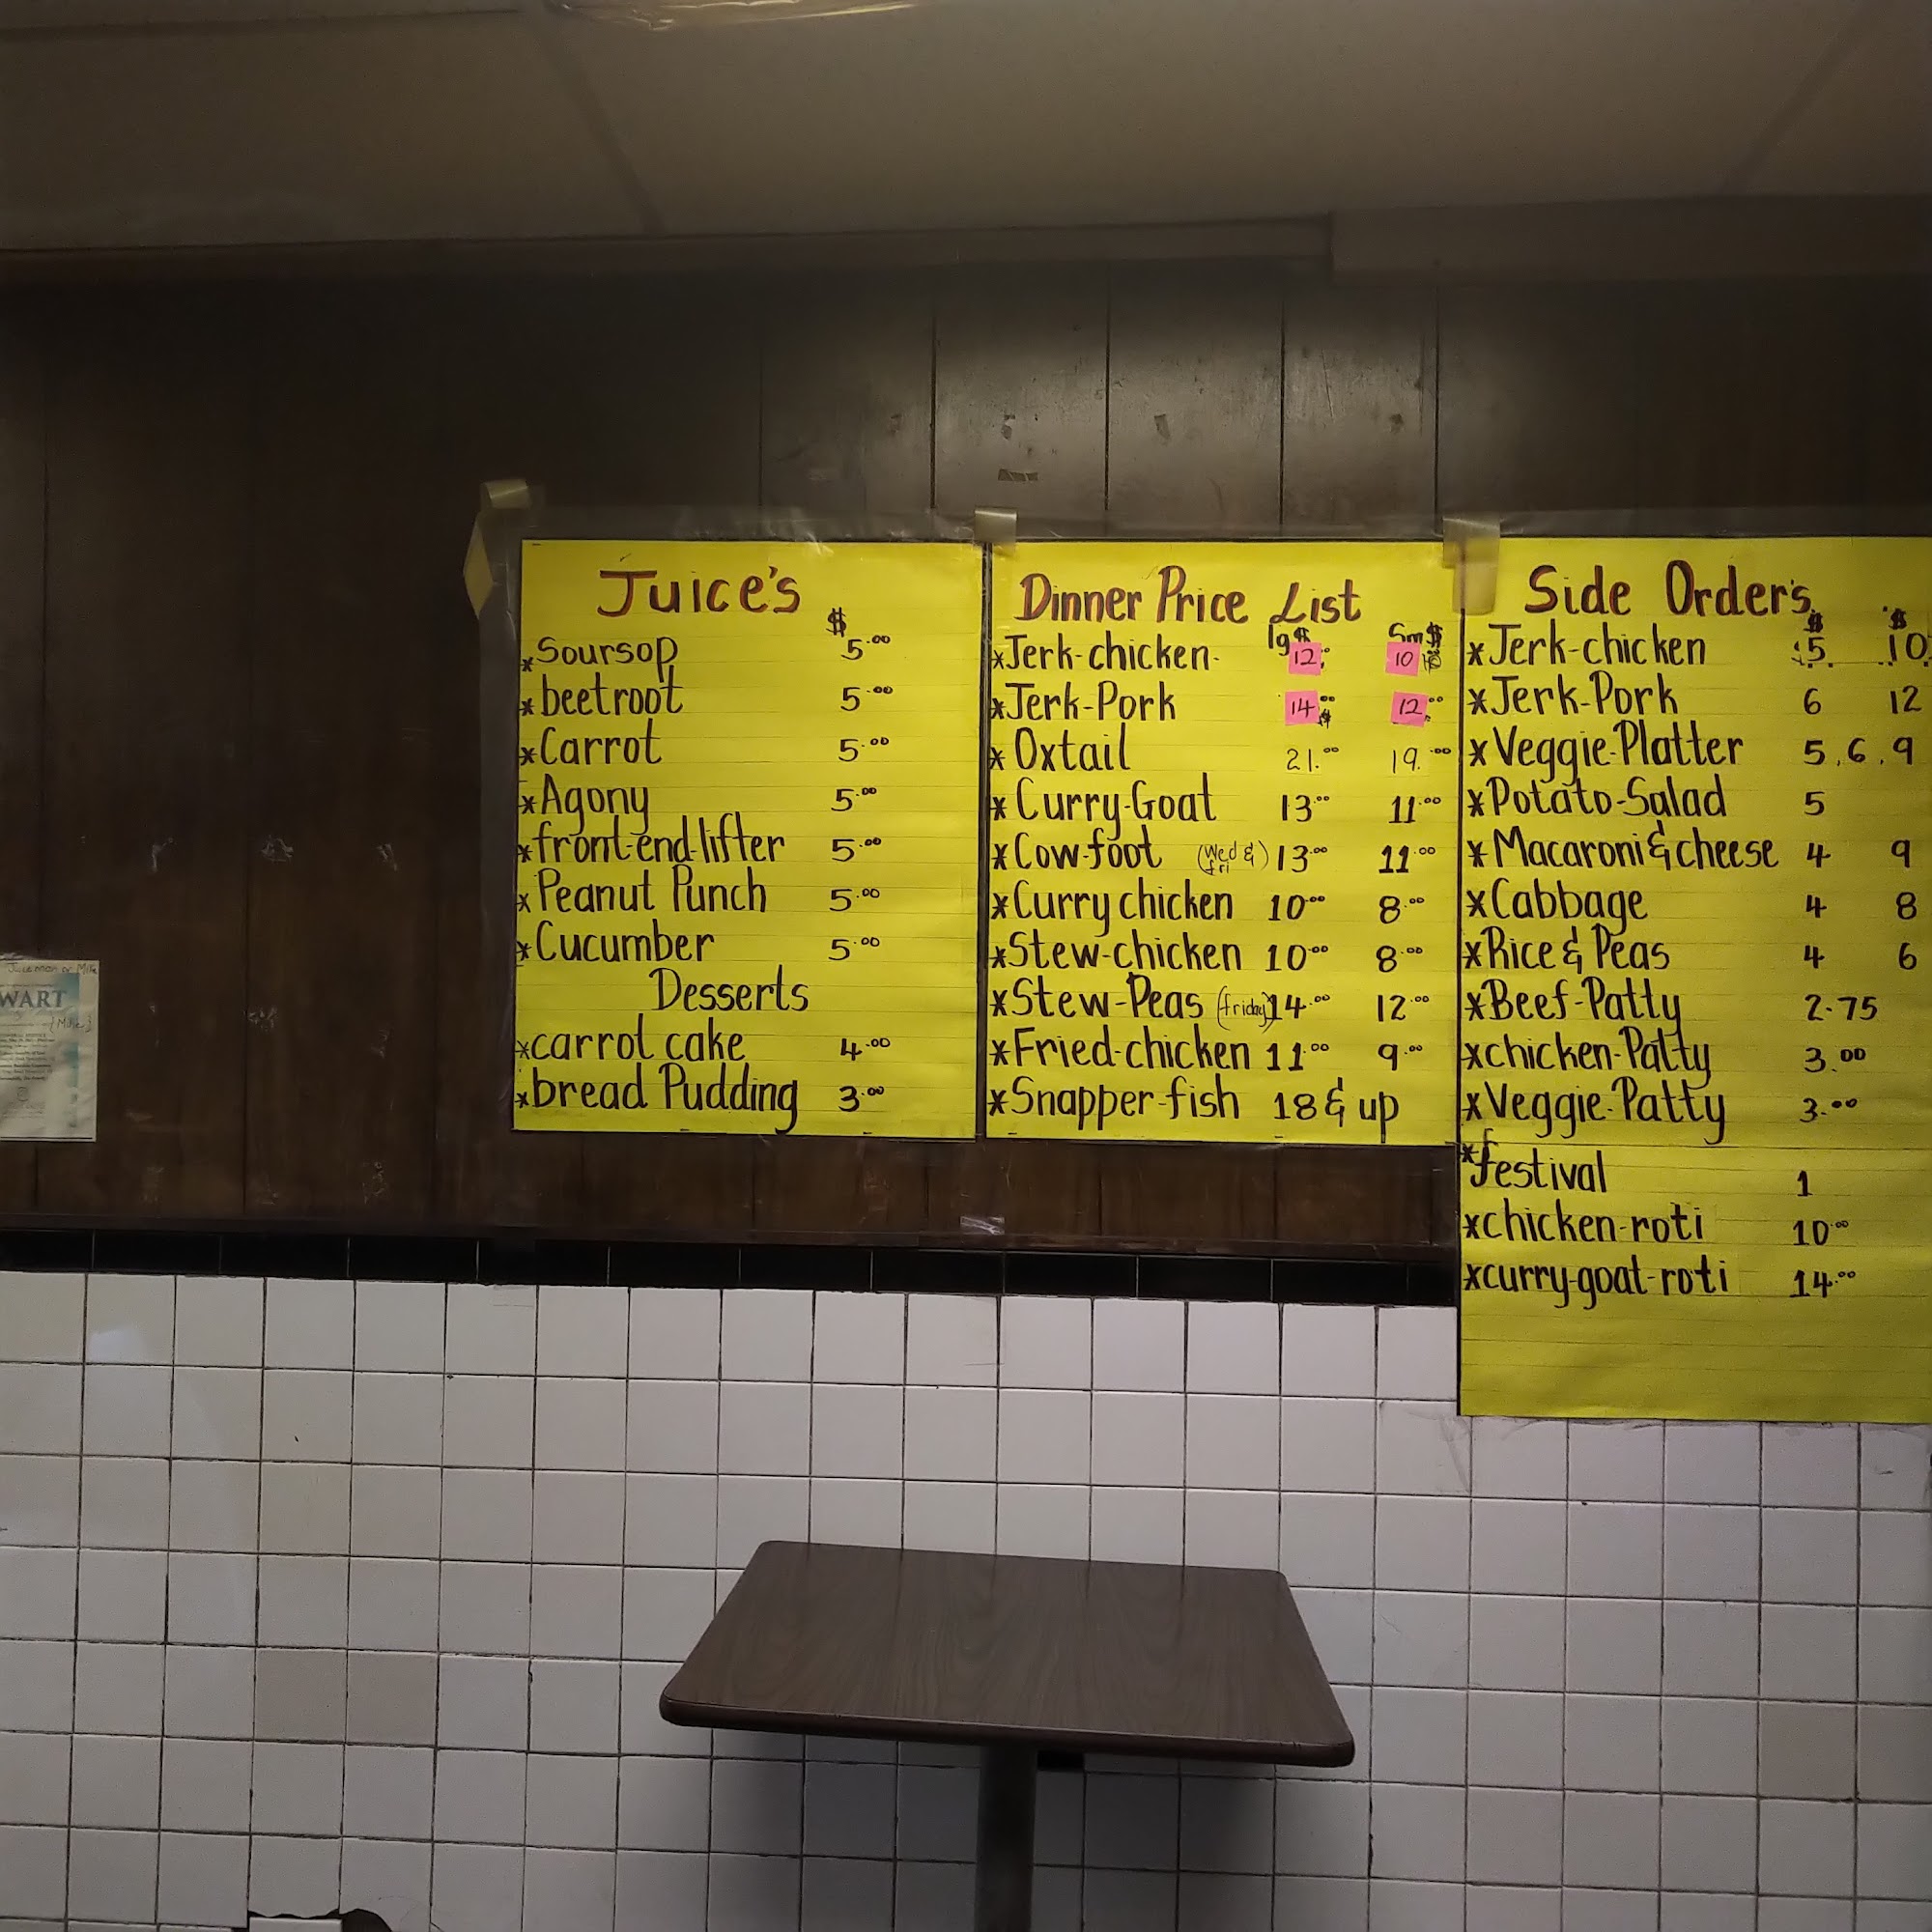 Juice's
$
*Soursop 5.00
*beetroot 5.00
*Carrot 5.00
*Agony 5.00
*front-end-lifter 5.00
*Peanut Punch 5.00
*Cucumber 5.00
Desserts
*carrot cake 4.00
*bread Pudding 3.00
Dinner Price List
lg$ Sm$
*Jerk-chicken- 12 10
*Jerk-Pork 14 12
*Oxtail 21.00 19.00
*Curry-Goat 13.00 11.00
*Cow-foot (Wed & fri) 13.00 11.00
*Curry chicken 10.00 8.00
*Stew-chicken 10.00 8.00
*Stew-Peas (friday) 14.00 12.00
*Fried-chicken 11.00 9.00
*Snapper-fish 18 & up
Side Order's
$ $
*Jerk-chicken 5 10
*Jerk-Pork 6 12
*Veggie-Platter 5, 6, 9
*Potato-Salad 5
*Macaroni & cheese 4 9
*Cabbage 4 8
*Rice & Peas 4 6
*Beef-Patty 2.75
*chicken-Patty 3.00
*Veggie-Patty 3.00
*festival 1
*chicken-roti 10.00
*curry-goat-roti 14.00
Juice man or Mike
WART
{Mike}